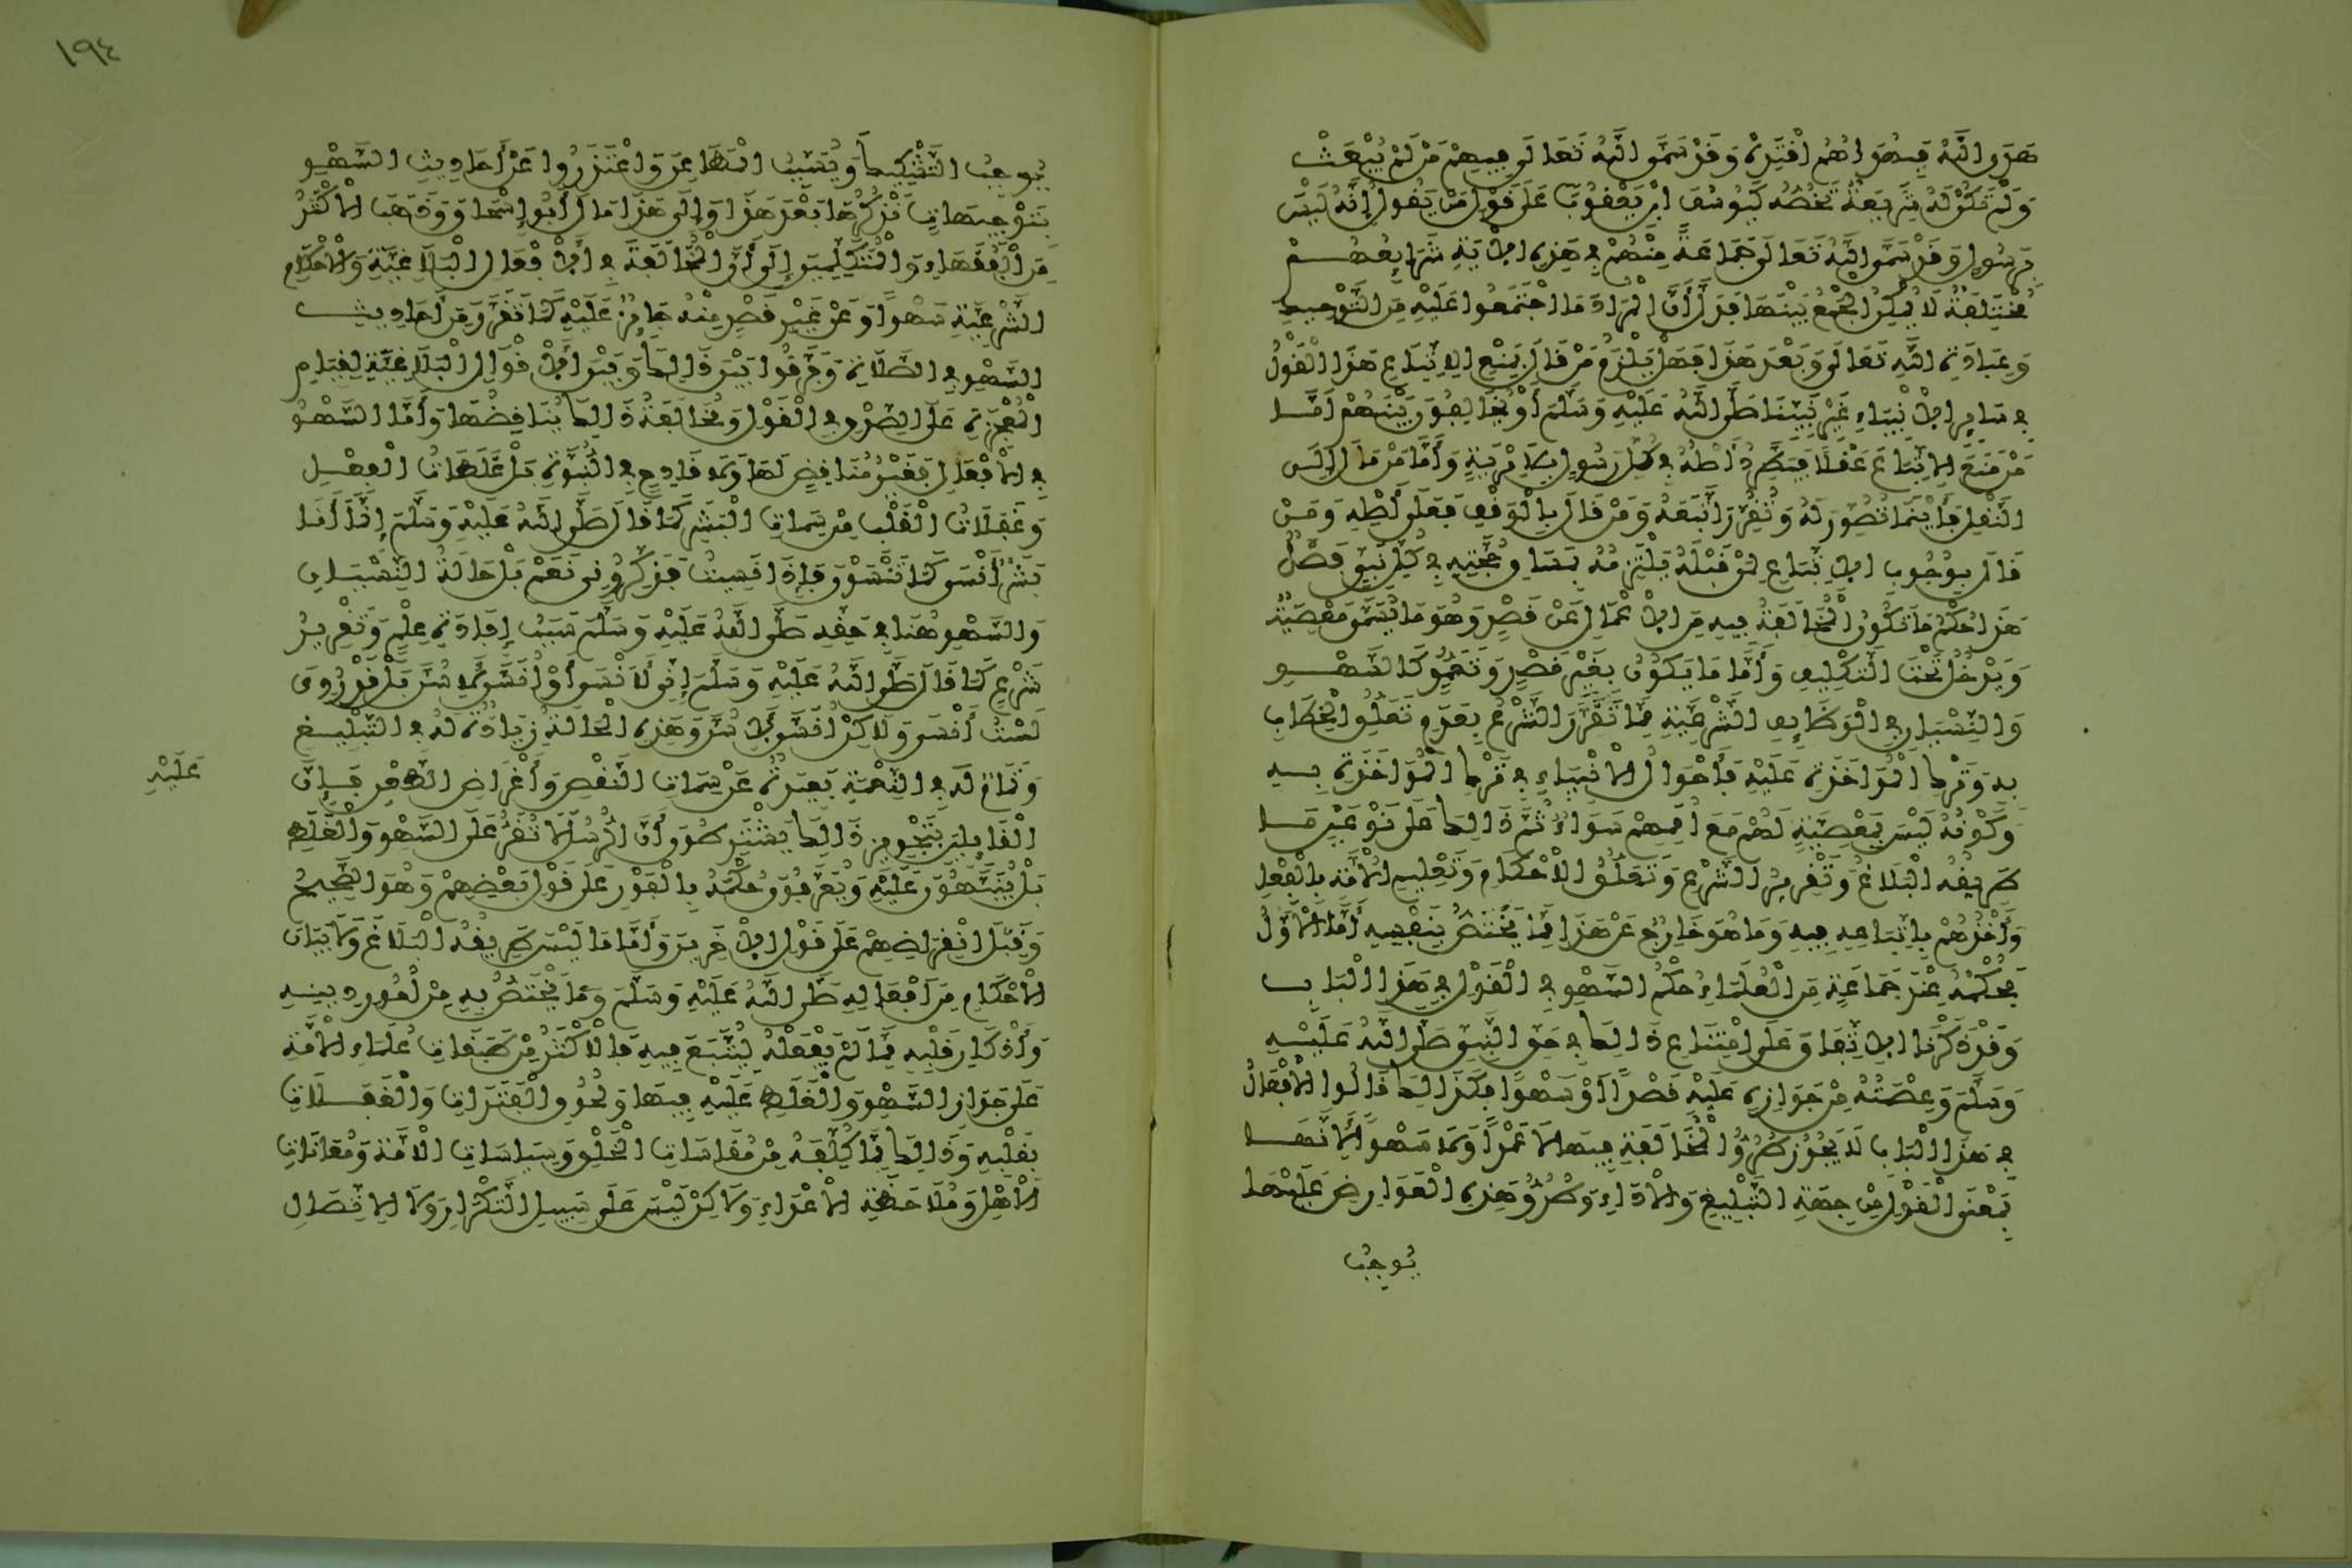 هَدَى اللَّهُ فَبِهُدَاهُمُ اقْتَدِهْ وَقَدْ سَمَّى اللَّهُ تَعَالَى فِيهِمْ مَنْ لَمْ يُبْعَثْ
وَلَمْ تَكُنْ لَهُ شَرِيعَةٌ تَخُصُّهُ كَيُوسُفَ ابْنِ يَعْقُوبَ عَلَى قَوْلِ مَنْ يَقُولُ إِنَّهُ لَيْسَ
بِرَسُولٍ وَقَدْ سَمَّى اللَّهُ تَعَالَى جَمَاعَةً مِنْهُمْ فِي هَذِهِ الْآيَةِ شَرَايِعُهُمْ
مُخْتَلِفَةٌ لَا يُمْكِنُ الْجَمْعُ بَيْنَهَا فَدَلَّ أَنَّ الْمُرَادَ مَا اجْتَمَعُوا عَلَيْهِ مِنَ التَّوْحِيدِ
وَعِبَادَةِ اللَّهِ تَعَالَى وَبَعْدَ هَذَا فَهَلْ يَلْزَمُ مَنْ قَالَ بِمَنْعِ الِاتِّبَاعِ هَذَا الْقَوْلُ
فِي سَايِرِ الْأَنْبِيَاءِ غَيْرِ نَبِيِّنَا صَلَّى اللَّهُ عَلَيْهِ وَسَلَّمَ أَوْ يُخَالِفُونَ بَيْنَهُمْ أَمَّا
مَنْ مَنَعَ الِاتِّبَاعَ عَقْلًا فَيَطَّرِدُ أَصْلُهُ فِي كُلِّ رَسُولٍ بِلَا مِرْيَةٍ وَأَمَّا مَنْ مَالَ إِلَى
النَّقْلِ فَأَيْنَمَا تُصُوِّرَ لَهُ وَتُقُرِّرَ اتَّبَعَهُ وَمَنْ قَالَ بِالْوَقْفِ فَعَلَى أَصْلِهِ وَمَنْ
قَالَ بِوُجُوبِ الِاتِّبَاعِ لِمَنْ قَبْلَهُ يَلْتَزِمُهُ بِمَسَاوِ حُجَّتِهِ فِي كُلِّ نَبِيٍّ فَصْلٌ
هَذَا حُكْمُ مَا تَكُونُ الْمُخَالَفَةُ فِيهِ مِنَ الْأَعْمَالِ عَنْ قَصْدٍ وَهُوَ مَا يُسَمَّى مَعْصِيَةً
وَيَدْخُلُ تَحْتَ التَّكْلِيفِ وَأَمَّا مَا يَكُونُ بِغَيْرِ قَصْدٍ وَتَعَمُّدٍ كَالسَّهْوِ
وَالنِّسْيَانِ فِي الْوَظَايِفِ الشَّرْعِيَّةِ مِمَّا تَقَرَّرَ الشَّرْعُ بِعَدَمِ تَعَلُّقِ الْخِطَابِ
بِهِ وَتَرْكِ الْمُوَاخَذَةِ عَلَيْهِ فَأَحْوَالُ الْأَنْبِيَاءِ فِي تَرْكِ الْمُوَاخَذَةِ بِهِ
وَكَوْنُهُ لَيْسَ بِمَعْصِيَةٍ لَهُمْ مَعَ أُمَمِهِمْ سَوَاءٌ ثُمَّ ذَالِكَ عَلَى نَوْعَيْنِ مَا
طَرِيقُهُ الْبَلَاغُ وَتَقْرِيرُ الشَّرْعِ وَتَعَلُّقُ الْأَحْكَامِ وَتَعْلِيمِ الْأُمَّةِ بِالْفِعْلِ
وَأَخْذُهُمْ بِاتِّبَاعِهِ فِيهِ وَمَا هُوَ خَارِجٌ عَنْ هَذَا مِمَّا يَخْتَصُّ بِنَفْسِهِ أَمَّا الْأَوَّلُ
فَحُكْمُهُ عِنْدَ جَمَاعَةٍ مِنَ الْعُلَمَاءِ حُكْمُ السَّهْوِ فِي الْقَوْلِ فِي هَذَا الْبَابِ
وَقَدْ ذَكَرْنَا الِاتِّفَاقَ عَلَى امْتِنَاعِ ذَالِكَ فِي حَقِّ النَّبِيِّ صَلَّى اللَّهُ عَلَيْهِ
وَسَلَّمَ وَعِصْمَتُهُ مِنْ جَوَازِهِ عَلَيْهِ قَصْدًا أَوْ سَهْوًا فَكَذَالِكَ قَالُوا الْأَفْعَالُ
فِي هَذَا الْبَابِ لَا يَجُوزُ طُرُوُّ الْمُخَالَفَةِ فِيهَا لَا عَمْدًا وَلَا سَهْوًا لِأَنَّهَا
بِمَعْنَى الْقَوْلِ مِنْ جِهَةِ التَّبْلِيغِ وَالْأَدَاءِ وَطُرُوُّ هَذِهِ الْعَوَارِضِ عَلَيْهَا
يُوجِبُ
١٩٤
يُوجِبُ التَّشْكِيكَ وَيُسَبِّبُ الْمَطَاعِنَ وَاعْتَذَرُوا عَنْ أَحَادِيثِ السَّهْوِ
بِتَوْجِيهَاتٍ نَذْكُرُهَا بَعْدَ هَذَا وَإِلَى هَذَا مَالَ أَبُو إِسْحَاقَ وَذَهَبَ الْأَكْثَرُ
مِنَ الْفُقَهَاءِ وَالْمُتَكَلِّمِينَ إِلَى أَنَّ الْمُخَالَفَةَ فِي الْأَفْعَالِ الْبَلَاغِيَّةِ وَالْأَحْكَامِ
الشَّرْعِيَّةِ سَهْوًا وَعَنْ غَيْرِ قَصْدٍ مِنْهُ جَايِزٌ عَلَيْهِ كَمَا تَقَرَّرَ مِنْ أَحَادِيثِ
السَّهْوِ فِي الصَّلَاةِ وَفَرَّقُوا بَيْنَ ذَالِكَ وَبَيْنَ الْأَقْوَالِ الْبَلَاغِيَّةِ لِقِيَامِ
الْمُعْجِزَةِ عَلَى الصِّدْقِ فِي الْقَوْلِ وَمُخَالَفَةُ ذَالِكَ يُنَاقِضُهَا وَأَمَّا السَّهْوُ
فِي الْأَفْعَالِ فَغَيْرُ مُنَاقِضٍ لَهَا وَلَا قَادِحٍ فِي النُّبُوَّةِ بَلْ غَلَطَاتُ الْفِعْلِ
وَغَفَلَاتُ الْقَلْبِ مِنْ سِمَاتِ الْبَشَرِ كَمَا قَالَ صَلَّى اللَّهُ عَلَيْهِ وَسَلَّمَ إِنَّمَا أَنَا
بَشَرٌ أَنْسَى كَمَا تَنْسَوْنَ فَإِذَا نَسِيتُ فَذَكِّرُونِي نَعَمْ بَلْ حَالَةُ النِّسْيَانِ
وَالسَّهْوِ هُنَا فِي حَقِّهِ صَلَّى اللَّهُ عَلَيْهِ وَسَلَّمَ سَبَبُ إِفَادَةِ عِلْمٍ وَتَقْرِيرُ
شَرْعٍ كَمَا قَالَ صَلَّى اللَّهُ عَلَيْهِ وَسَلَّمَ إِنِّي لَأَنْسَى أَوْ أُنَسَّى لِأَسُنَّ بَلْ قَدْ رُوِيَ
لَسْتُ أَنْسَى وَلَاكِنْ أُنَسَّى لِأَسُنَّ وَهَذِهِ الْحَالَةُ زِيَادَةٌ لَهُ فِي التَّبْلِيغِ
وَتَمَامٌ لَهُ فِي النِّعْمَةِ بَعِيدَةٌ عَنْ سِمَاتِ النَّقْصِ وَأَغْرَاضِ الطَّعْنِ فَإِنَّ
عَلَيْهِ
الْقَايِلِينَ بِتَجْوِيزِ ذَالِكَ يَشْتَرِطُونَ أَنَّ الرُّسُلَ لَا تُقَرُّ عَلَى السَّهْوِ وَالْغَلَطِ
بَلْ يُنَبَّهُونَ عَلَيْهِ وَيُعَرَّفُونَ حُكْمَهُ بِالْفَوْرِ عَلَى قَوْلِ بَعْضِهِمْ وَهُوَ الصَّحِيحُ
وَقَبْلَ انْقِرَاضِهِمْ عَلَى قَوْلِ الْآخَرِينَ وَأَمَّا مَا لَيْسَ طَرِيقُهُ الْبَلَاغَ وَلَا بَيَانَ
الْأَحْكَامِ مِنْ أَفْعَالِهِ صَلَّى اللَّهُ عَلَيْهِ وَسَلَّمَ وَمَا يَخْتَصُّ بِهِ مِنْ أُمُورِ دِينِهِ
وَأَذْكَارِ قَلْبِهِ مِمَّا لَمْ يَفْعَلْهُ لِيُتَّبَعَ فِيهِ فَالْأَكْثَرُ مِنْ طَبَقَاتِ عُلَمَاءِ الْأُمَّةِ
عَلَى جَوَازِ السَّهْوِ وَالْغَلَطِ عَلَيْهِ فِيهَا وَلُحُوقِ الْفَتَرَاتِ وَالْغَفَلَاتِ
بِقَلْبِهِ وَذَالِكَ مِمَّا كُلِّفَهُ مِنْ مُقَاسَاتِ الْخَلْقِ وَسِيَاسَاتِ الْأُمَّةِ وَمُعَانَاتِ
الْأَهْلِ وَمُلَاحَظَةِ الْأَعْدَاءِ وَلَاكِنْ لَيْسَ عَلَى سَبِيلِ التَّكْرَارِ وَلَا الِاتِّصَالِ